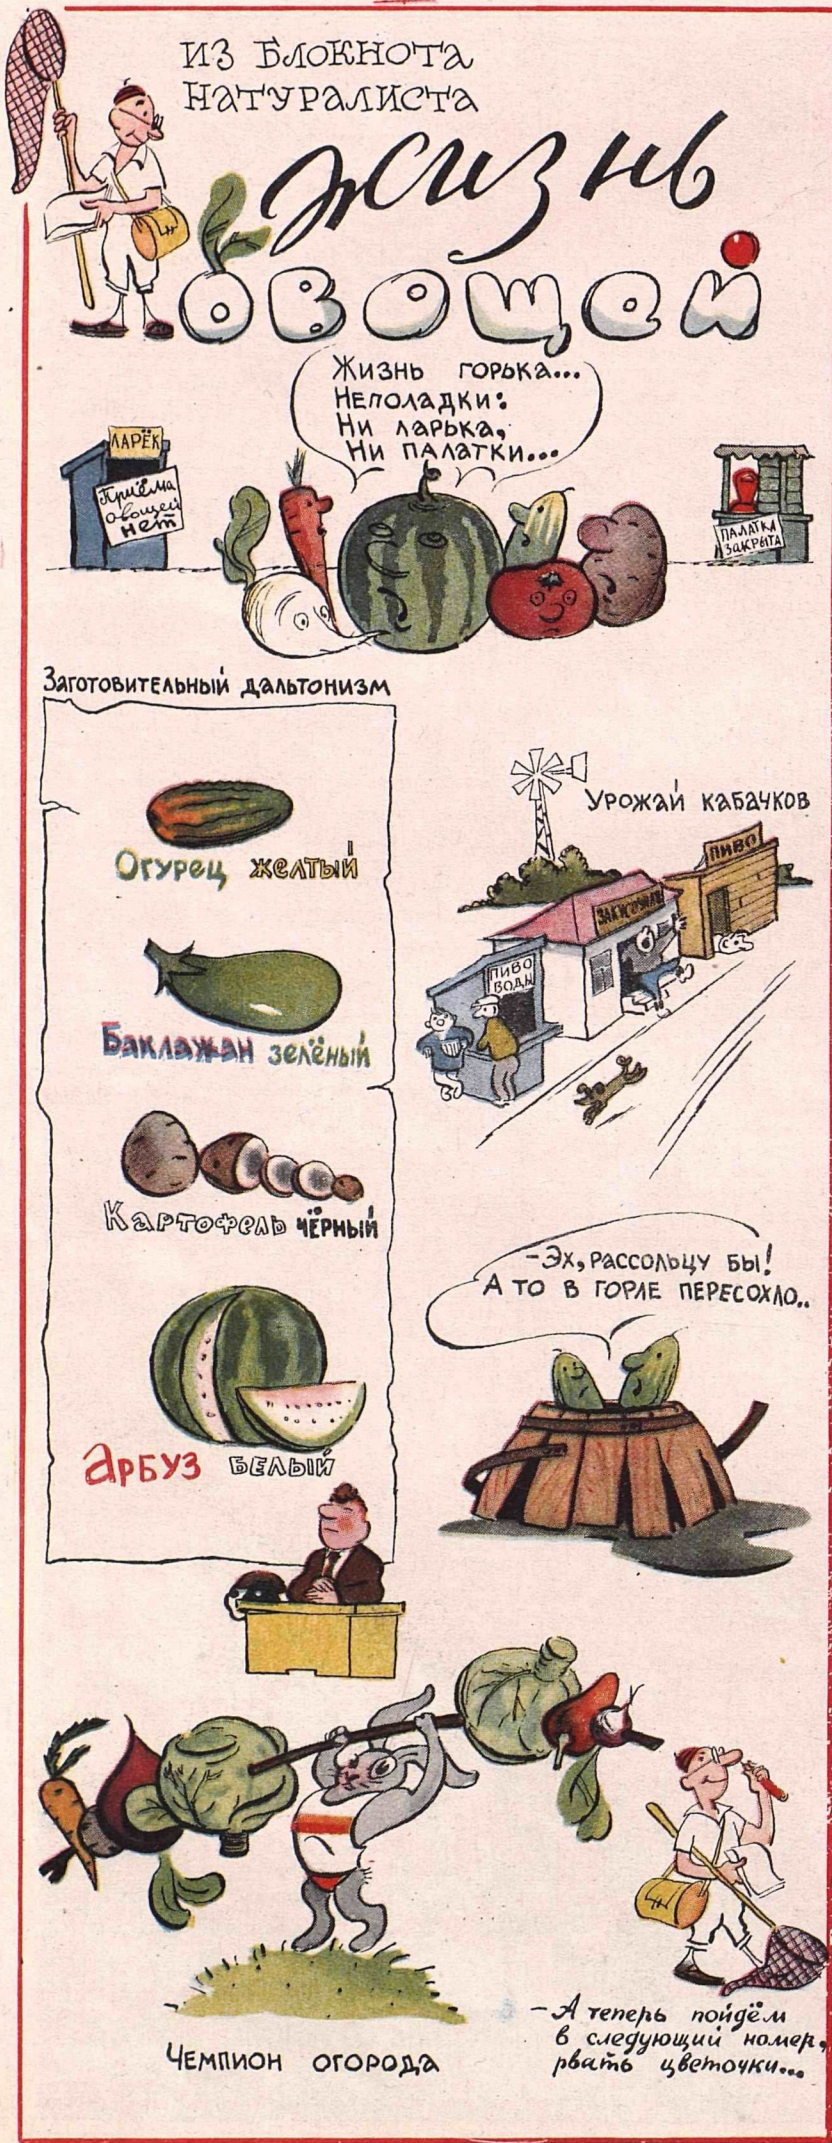 ИЗ БЛОКНОТА
НАТУРАЛИСТА
жизнь
овощей
Жизнь горька...
Неполадки:
Ни ларька,
Ни палатки...
ЛАРЁК
Приёма
овощей
нет
ПАЛАТКА
ЗАКРЫТА
Заготовительный дальтонизм
Огурец желтый
Баклажан зелёный
Картофель чёрный
Арбуз белый
Урожай кабачков
ПИВО
ЗАКУСОЧНАЯ
ПИВО
ВОДЫ
-Эх, рассольцу бы!
А то в горле пересохло..
Чемпион огорода
-А теперь пойдём
в следующий номер,
рвать цветочки...